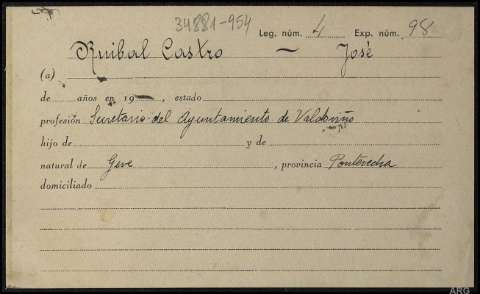 34881-954
Leg. núm. 4 Exp. núm. 98
Ruibal Castro — José
(a)
de años en 19—, estado
profesión Secretario del Ayuntamiento de Valdoviño
hijo de y de
natural de Geve, provincia Pontevedra
domiciliado
ARG